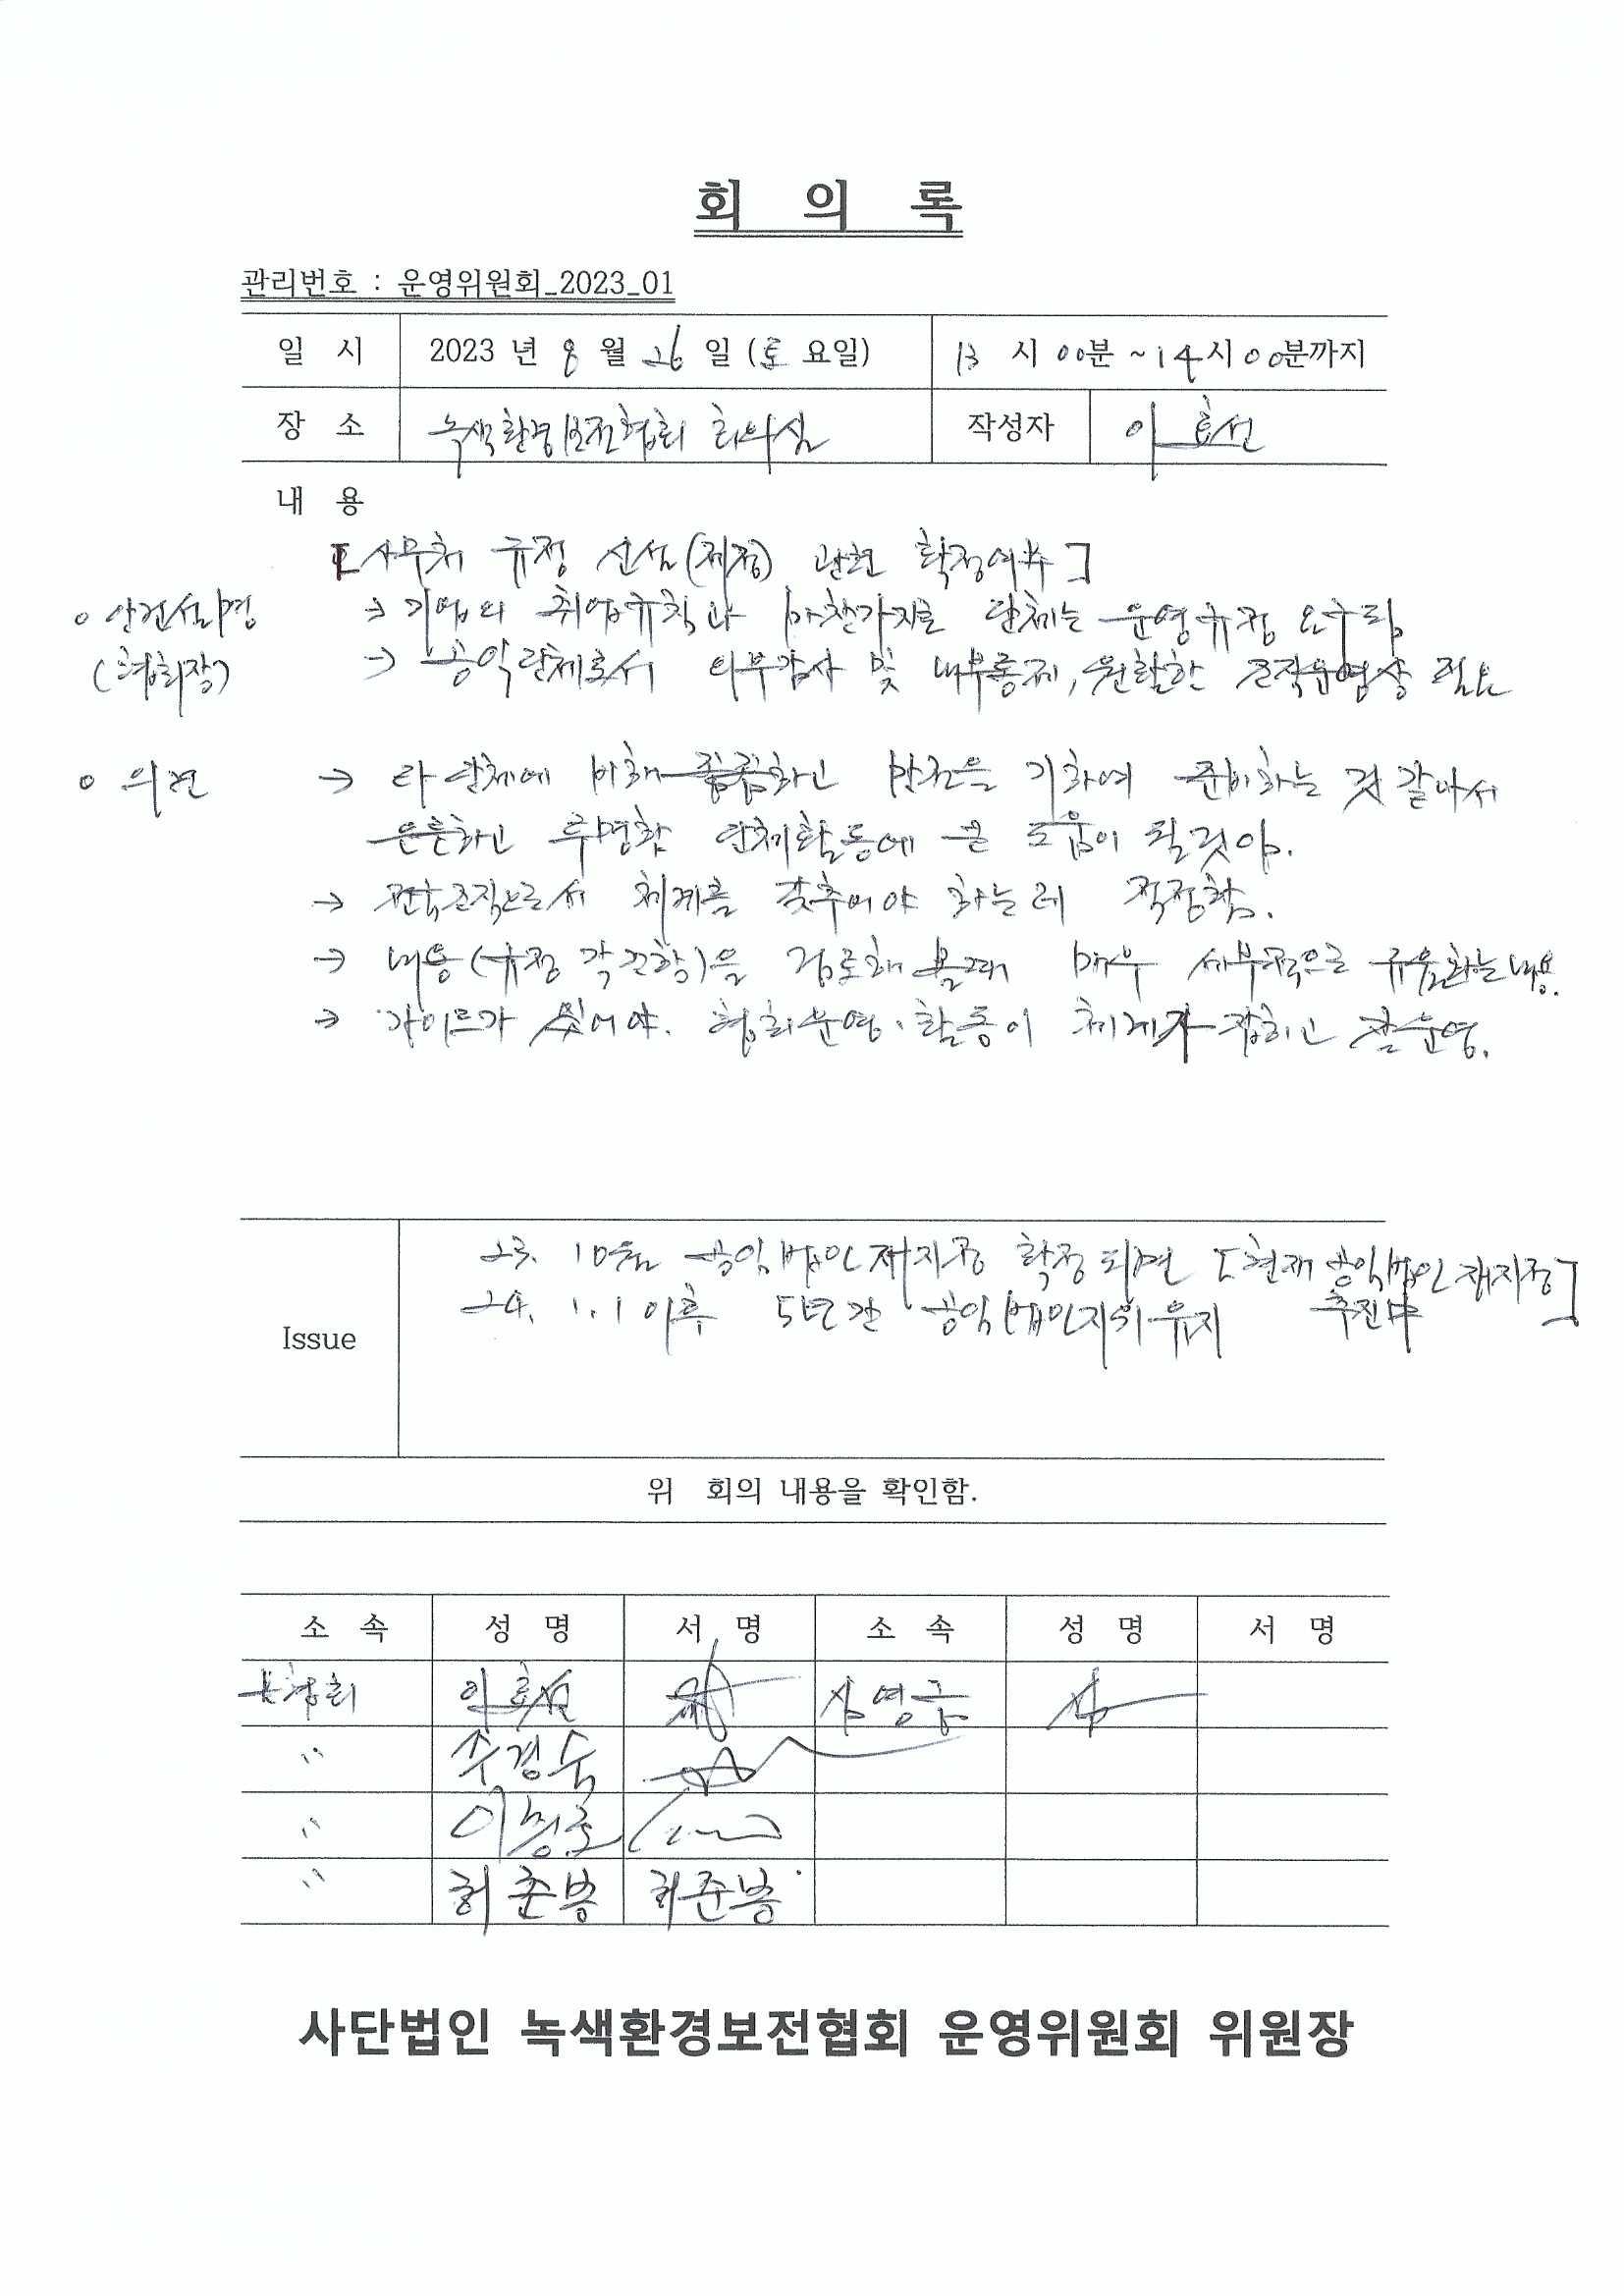 회 의 록
관리번호 : 운영위원회_2023_01
일 시 2023 년 8 월 26 일 (토 요일) 13 시 00분 ~ 14시 00분까지
장 소 녹색환경보전협회 회의실 작성자 이효선
내 용
[사무처 규정 신설(제정) 관련 확정여부]
○ 안건설명 → 기업의 취업규칙과 마찬가지로 단체는 운영규정 요구됨
(협회장) → 공익단체로서 외부감사 및 내부통제, 원활한 조직운영상 필요
○ 의견 → 타 단체에 비해 꼼꼼하고 만전을 기하여 준비하는 것 같아서
튼튼하고 투명한 단체활동에 큰 도움이 될것임.
→ 조직으로서 체계를 갖추어야 하는데 적정함.
→ 내용(규정 각조항)을 검토해 볼때 매우 세부적으로 규율하는 내용.
→ 가이드가 있어야. 협회운영·활동이 체계가 잡히고 잘 운영.
Issue
23. 10월 공익법인 재지정 확정 되면 [현재 공익법인 재지정
24. 1. 1 이후 5년간 공익법인지위 유지 추진中]
위 회의 내용을 확인함.
소 속 성 명 서 명 소 속 성 명 서 명
녹협회 이효선 심영금
〃 주경숙
〃
〃 허준봉 허준봉
사단법인 녹색환경보전협회 운영위원회 위원장